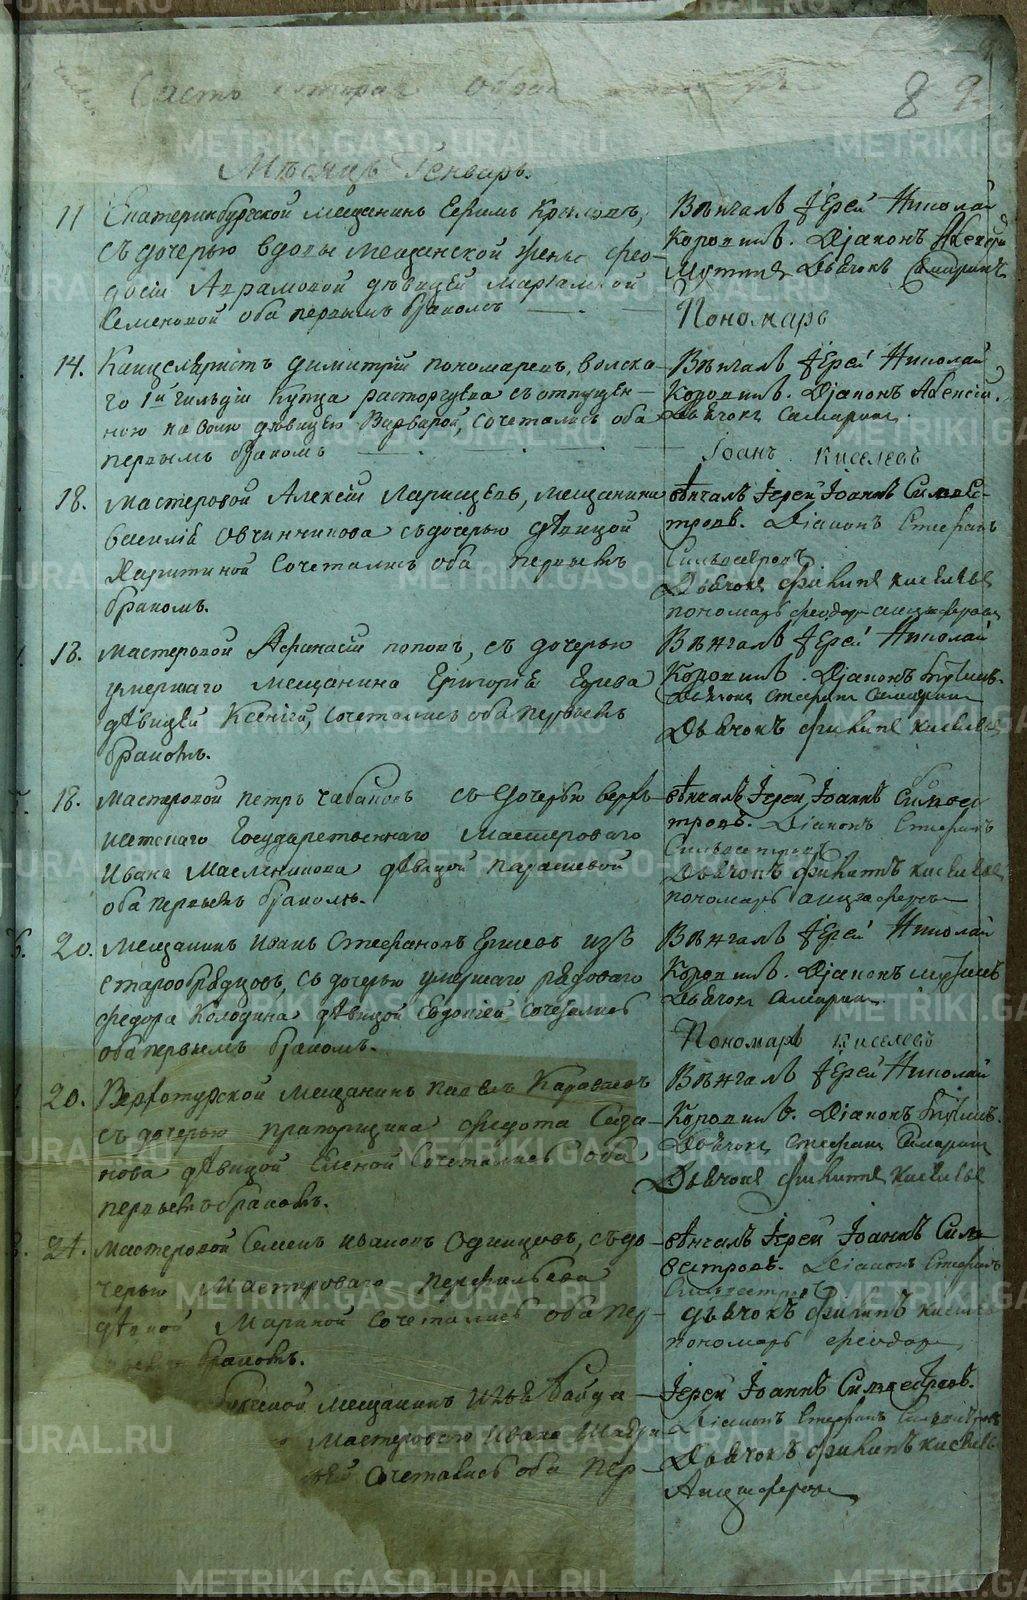 89
Часть вторая
Мѣсяцъ Генварь.
11 Екатеринбургской мещанинъ Ефимъ
съ дочерью вдовы мещанской жены Фео-
досіи Аврамовой дѣвицей
Семеновой оба первымъ бракомъ
Вѣнчалъ Іерей Николай
Коровинъ. Діаконъ Алексій
Дьячокъ Самаринъ
Пономарь
14. Канцеляристъ Димитрій Пономаревъ, вольска-
го 1й гильдіи купца расторгуева съ отпущен-
ною на волю дѣвицею Варварой, сочетались оба
первымъ бракомъ
Вѣнчалъ Іерей Николай
Коровинъ. Діаконъ Алексій.
Дьячокъ Самаринъ
Іоанъ Киселевъ
18. Мастеровой Алексій Ларинцевъ, мещанина
Василія Овчинникова съ дочерью дѣвицой
Харитиной сочетались оба первымъ
бракомъ.
вѣнчалъ Іерей Іоаннъ Сильвес-
тровъ. Діаконъ Стефанъ
Сильвестровъ
Дьячокъ Филипъ Киселевъ
пономарь Феодоръ Анцыферовъ
18. Мастеровой Афанасій Поповъ, съ дочерью
умершаго мещанина Григорія
дѣвицей Ксеніей, сочетались оба первымъ
бракомъ.
Вѣнчалъ Іерей Николай
Коровинъ. Діаконъ
Дьячокъ Стефанъ Самаринъ
Дьячокъ Филипъ Киселевъ
18. Мастеровой Петръ Чабановъ съ дочерью верхъ-
исетскаго Государственнаго мастероваго
Ивана Масленикова дѣвицой Парасковой
оба первымъ бракомъ.
вѣнчалъ Іерей Іоаннъ Сильвес
тровъ. Діаконъ Стефанъ
Сильвестровъ
Дьячокъ Филипъ Киселевъ
пономарь Анцыферовъ
20. Мещанинъ Иванъ Стефановъ изъ
старообрядцовъ, съ дочерью умершаго рядоваго
Федора Колодина дѣвицой Евдокіей сочетались
оба первымъ бракомъ.
Вѣнчалъ Іерей Николай
Коровинъ. Діаконъ
Дьячокъ Самаринъ
Пономарь Киселевъ
20. Верхотурской мещанинъ Павелъ Караваевъ
съ дочерью прапорщика Федота Сыза-
нова дѣвицой Еленой сочетались оба
первымъ бракомъ.
Вѣнчалъ Іерей Николай
Коровинъ. Діаконъ
Дьячокъ Стефанъ Самаринъ
Дьячокъ Филипъ Киселевъ
21. Мастеровой Семенъ Ивановъ Одинцовъ, съ до-
черью мастероваго Перфильева
дѣвкой Мариной сочетались оба пер-
бракомъ.
вѣнчалъ Іерей Іоаннъ Силь
вестровъ. Діаконъ Стефанъ
Сильвестровъ
дьячокъ Филипъ Киселевъ
пономарь Феодоръ
бургской мещанинъ Илья
мастероваго Ивана
сочетались оба пер-
Іерей Іоаннъ Сильвестровъ.
Діаконъ Стефанъ Сильвестровъ
Дьячокъ Филипъ Киселевъ
Анцыферовъ
METRIKI.GASO-URAL.RU